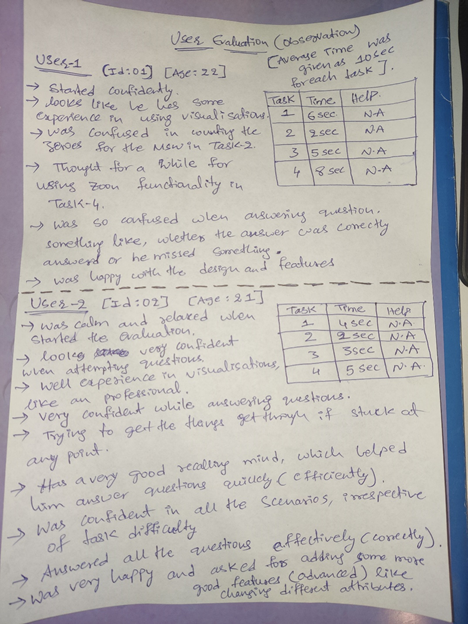 User Evaluation (observation)
[Average Time was
given as 10sec
for each task].
User-1 [Id:01] [Age:22]
→ Started confidently.
→ looks like he has some
experience in using visualisations.
→ was confused in counting the
zeroes for the MSW in Task-2.
→ Thought for a while for
using zoom functionality in
Task-4.
Task Time Help
1 6sec N.A
2 2sec N.A
3 5sec N.A
4 8sec N.A
→ was so confused when answering question.
something like, whether the answer was correctly
answerd or he missed something.
→ was happy with the design and features
User-2 [Id:02] [Age:21]
→ was calm and relaxed when
started the evaluation.
→ looks very confident
when attempting questions.
→ well experience in visualisations,
like an professional.
Task Time Help
1 4sec N.A
2 2sec N.A
3 3sec N.A
4 5sec N.A.
→ Very confident while answering questions.
→ Trying to get the things get through if stuck at
any point.
→ Has a very good recalling mind, which helped
him answer questions quickly (efficiently).
→ Was confident in all the scenarios, irrespective
of task difficulty
→ Answered all the questions affectively (correctly).
→ Was very happy and asked for adding some more
good features (advanced) like
changing different attributes.